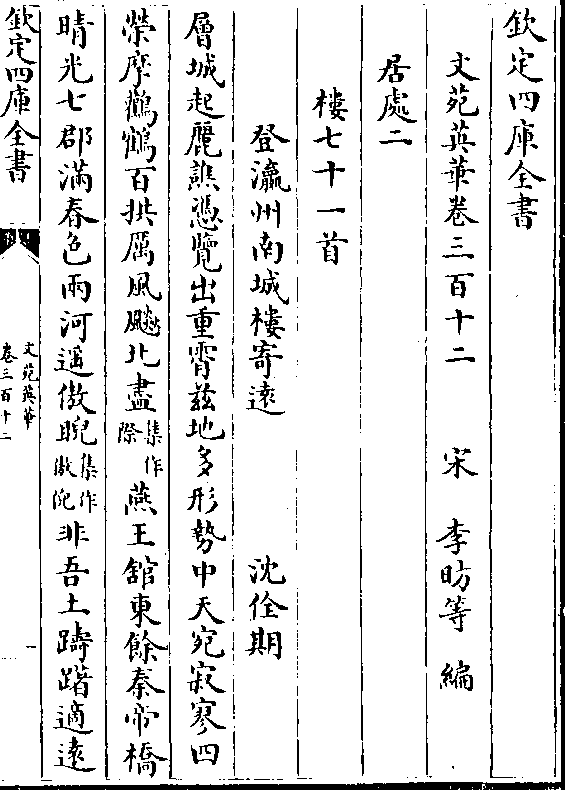 欽定四庫全書
文苑英華卷三百十二 宋 李昉等 編
居處二
樓七十一首
登瀛州南城樓寄遠 沈佺期
層城起麗譙憑覽出重霄茲地多形勢中天宛寂寥四
榮摩鸛鶴百拱厲風飇北盡集作際燕王館東餘秦帝橋
晴光七郡滿春色兩河遥傲睨集作傲倪非吾土躊躇適遠
欽定四庫全書
文苑英華
卷三百十二
一